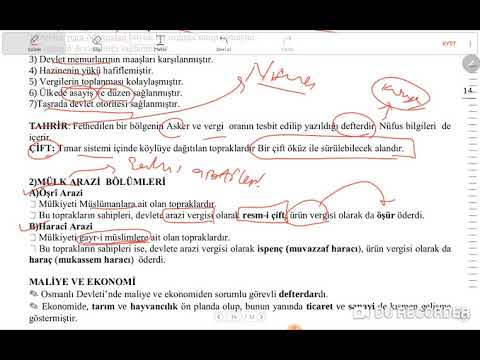 KYDT
Silgi
Metin
Devlet
Araç
3) Devlet memurlarının maaşları karşılanmıştır.
4) Hazinenin yükü hafiflemiştir.
5) Vergilerin toplanması kolaylaşmıştır.
6) Ülkede asayiş ve düzen sağlanmıştır.
7)Taşrada devlet otoritesi sağlanmıştır.
14
TAHRİR: Fethedilen bir bölgenin Asker ve vergi oranın tesbit edilip yazıldığı defterdir. Nüfus bilgileri de
içerir.
ÇİFT: Tımar sistemi içinde köylüye dağıtılan topraklardır Bir çift öküz ile sürülebilecek alandır.
2)MÜLK ARAZİ BÖLÜMLERİ
A)Öşrî Arazi
Mülkiyeti Müslümanlara ait olan topraklardır.
Bu toprakların sahipleri, devlete arazi vergisi olarak resm-i çift, ürün vergisi olarak da öşür öderdi.
B)Haracî Arazi
Mülkiyeti gayr-i müslimlere ait olan topraklardır.
Bu toprakların sahipleri ise, devlete arazi vergisi olarak ispenç (muvazzaf haracı), ürün vergisi olarak da
haraç (mukassem haracı) öderdi.
MALİYE VE EKONOMİ
Osmanlı Devleti'nde maliye ve ekonomiden sorumlu görevli defterdardı.
Ekonomide, tarım ve hayvancılık ön planda olup, bunun yanında ticaret ve sanayi de kısmen gelişme
göstermiştir.
DU RECORDER